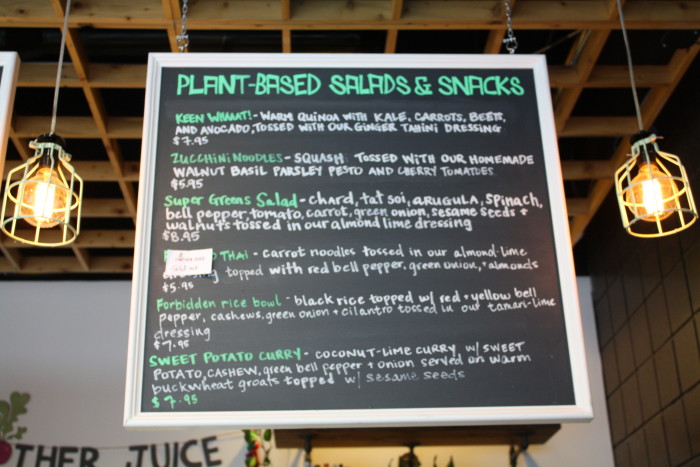 PLANT-BASED SALADS & SNACKS
KEEN WHAAAT! - WARM QUINOA WITH KALE, CARROTS, BEETS,
AND AVOCADO, TOSSED WITH OUR GINGER TAHINI DRESSING
$7.95
ZUCCHINI NOODLES - SQUASH TOSSED WITH OUR HOMEMADE
WALNUT BASIL PARSLEY PESTO AND CHERRY TOMATOES
$5.95
Super Greens Salad - chard, tat soi, arugula, spinach,
bell pepper, tomato, carrot, green onion, sesame seeds +
walnuts tossed in our almond lime dressing
$8.95
THAI - carrot noodles tossed in our almond-lime
topped with red bell pepper, green onion, + almonds
$5.95
Forbidden rice bowl - black rice topped w/ red + yellow bell
pepper, cashews, green onion + cilantro tossed in our tamari-lime
dressing
$7.95
SWEET POTATO CURRY - COCONUT-LIME CURRY W/ SWEET
POTATO, CASHEW, green bell pepper + onion served on warm
buckwheat groats topped w/ sesame seeds
$7.95
THER JUICE